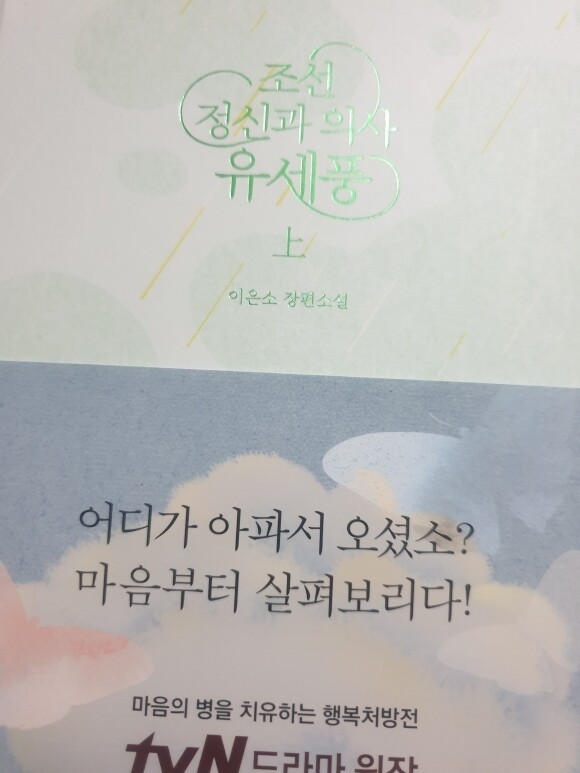 조선
정신과 의사
유세풍
上
이은소 장편소설
어디가 아파서 오셨소?
마음부터 살펴보리다!
마음의 병을 치유하는 행복처방전
tvN 드라마 원작